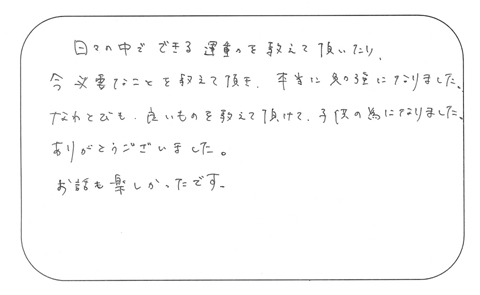 日々の中で できる 運動のを教えて頂いたり、
今 必要なことを教えて頂き、本当に勉強になりました。
なわとびも、良いものを教えて頂けて、子供の為になりました。
ありがとうございました。
お話も楽しかったです。